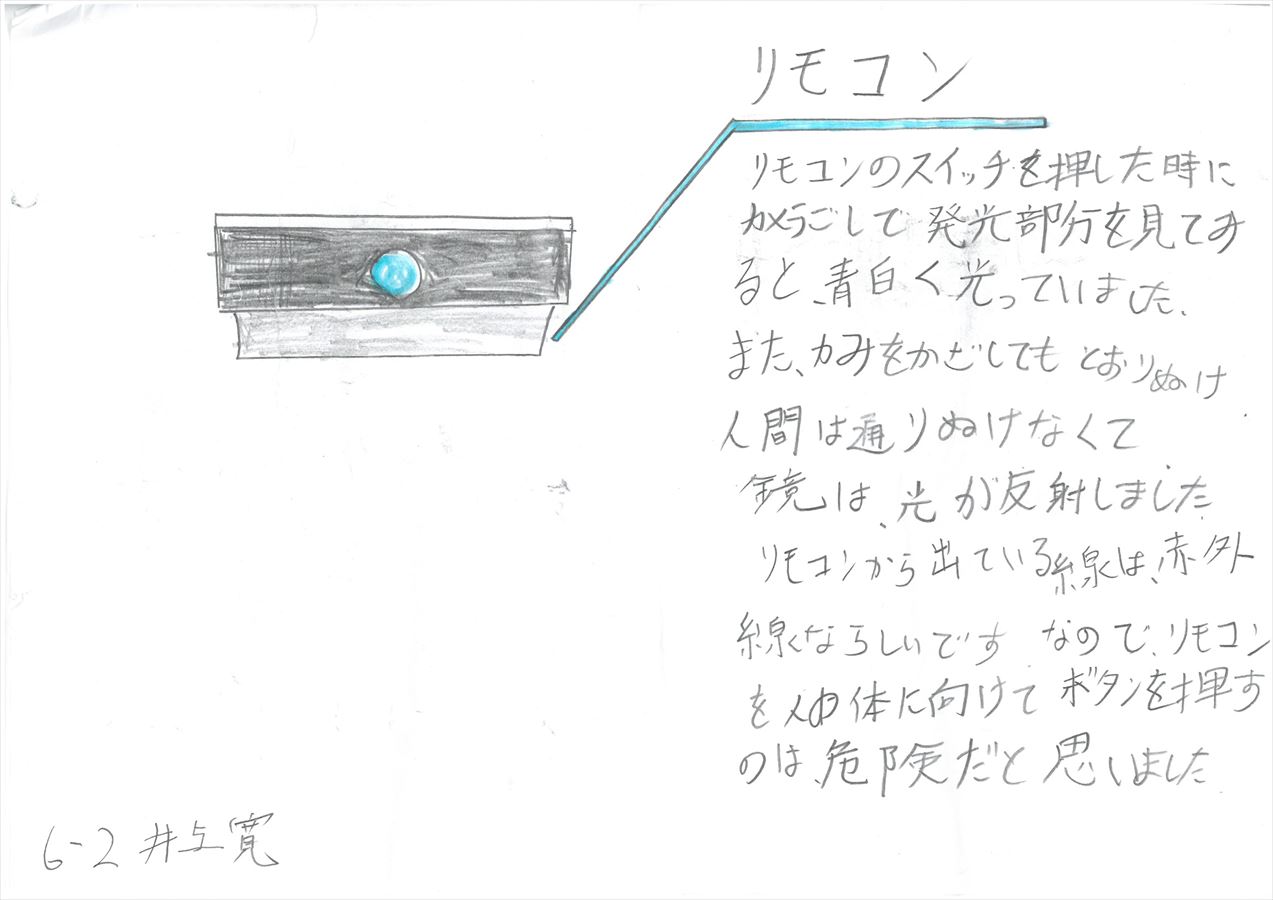 リモコン
リモコンのスイッチを押した時に
カメラごしで発光部分を見てみ
ると、青白く光っていました、
また、かみをかざしてもとおりぬけ
人間は通りぬけなくて
鏡は、光が反射しました
リモコンから出ている線は、赤外
線ならしいです なので、リモコン
を人体に向けてボタンを押す
のは、危険だと思いました
6-2 井上寛